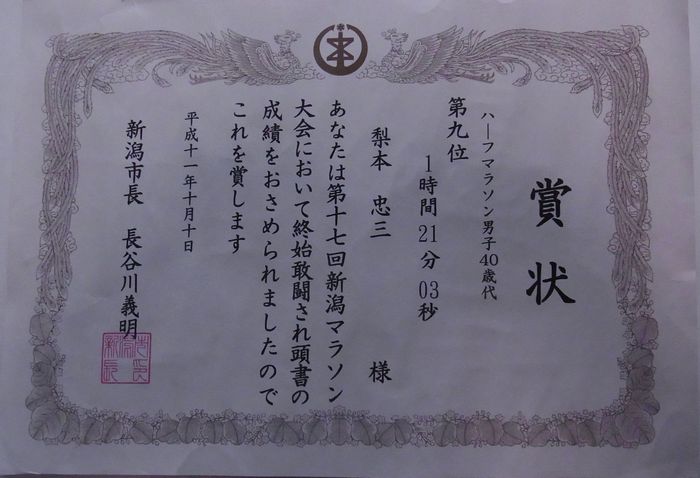 賞状
ハーフマラソン男子40歳代
第九位
1時間21分03秒
梨本 忠三 様
あなたは第十七回新潟マラソン
大会において終始敢闘され頭書の
成績をおさめられましたので
これを賞します
平成十一年十月十日
新潟市長 長谷川義明